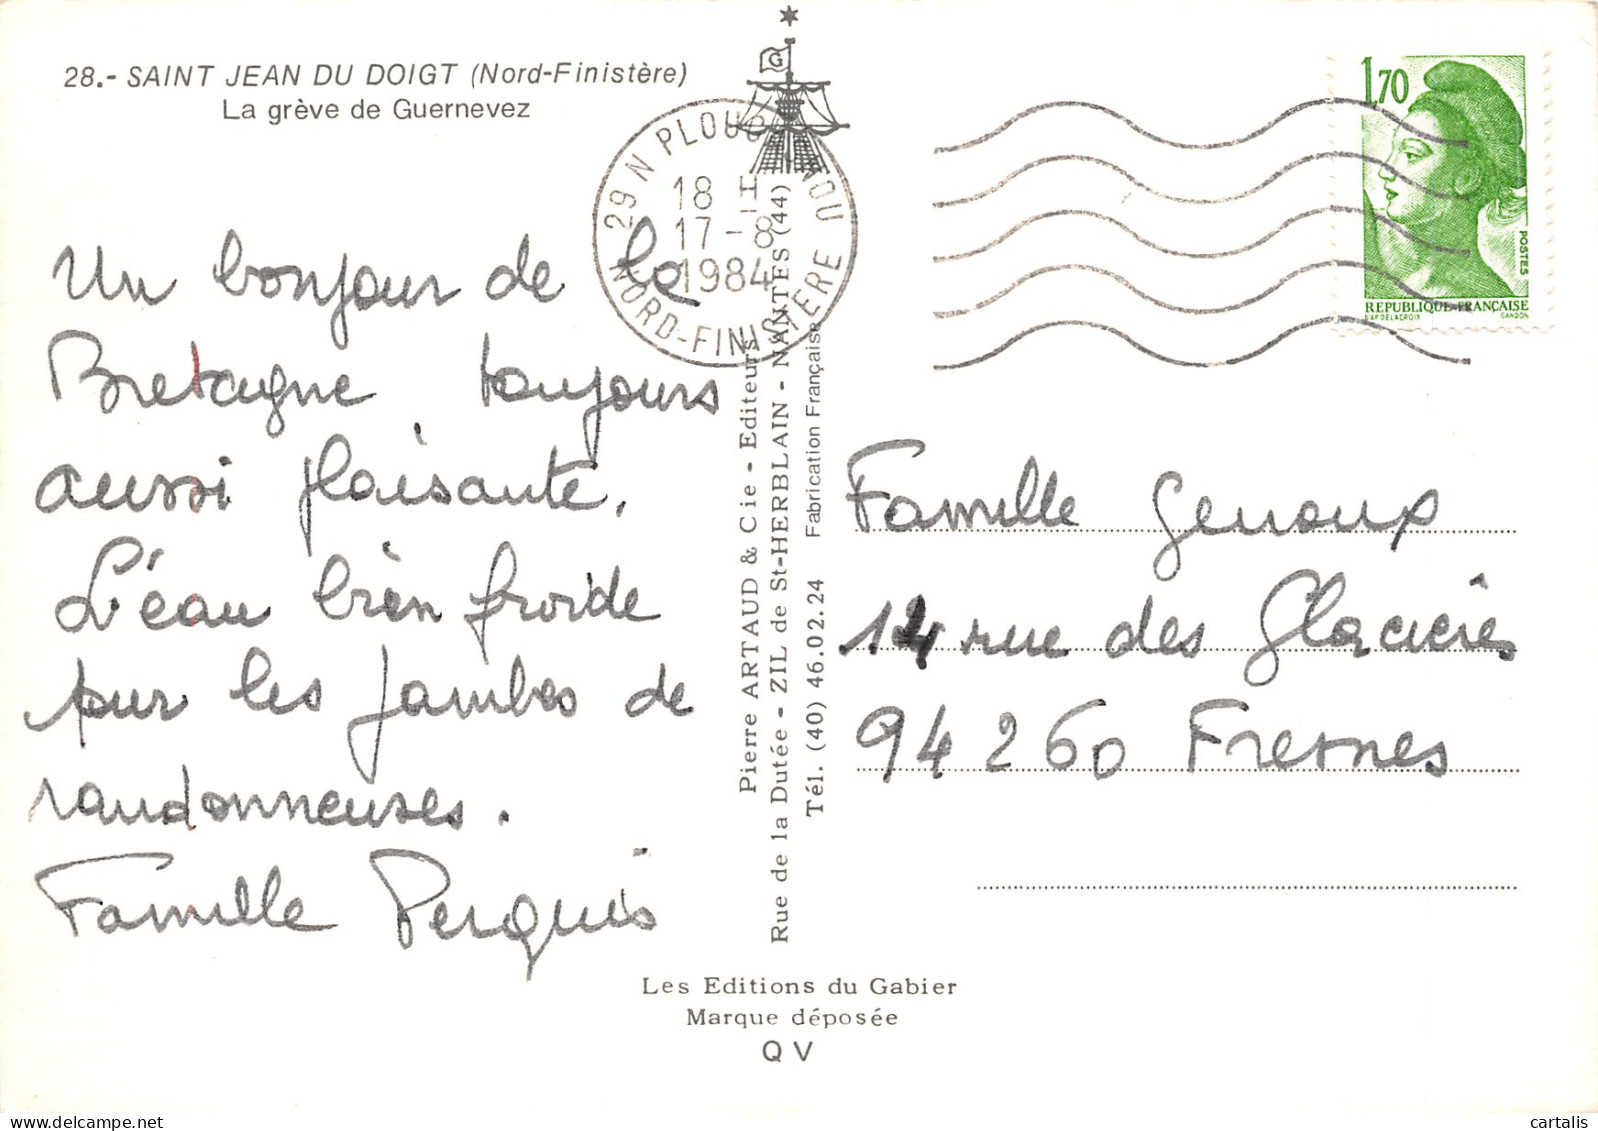 28.- SAINT JEAN DU DOIGT (Nord-Finistère)
La grève de Guernevez
Un bonjour de la
Bretagne toujours
aussi plaisante.
L'eau bien froide
pur les jambes de
randonneuses.
Famille Perquis
G
29 N PLOUG NOU
18 H
17-8
1984
NORD-FINISTERE
Pierre ARTAUD & Cie - Editeurs
Rue de la Dutée - ZIL de St-HERBLAIN - NANTES (44)
Tél. (40) 46.02.24 Fabrication Française
1,70
POSTES
REPUBLIQUE FRANÇAISE
D'AP. DELACROIX GANDON
Famille Genoux
14 rue des Glacières
94260 Fresnes
Les Editions du Gabier
Marque déposée
QV
cartalis